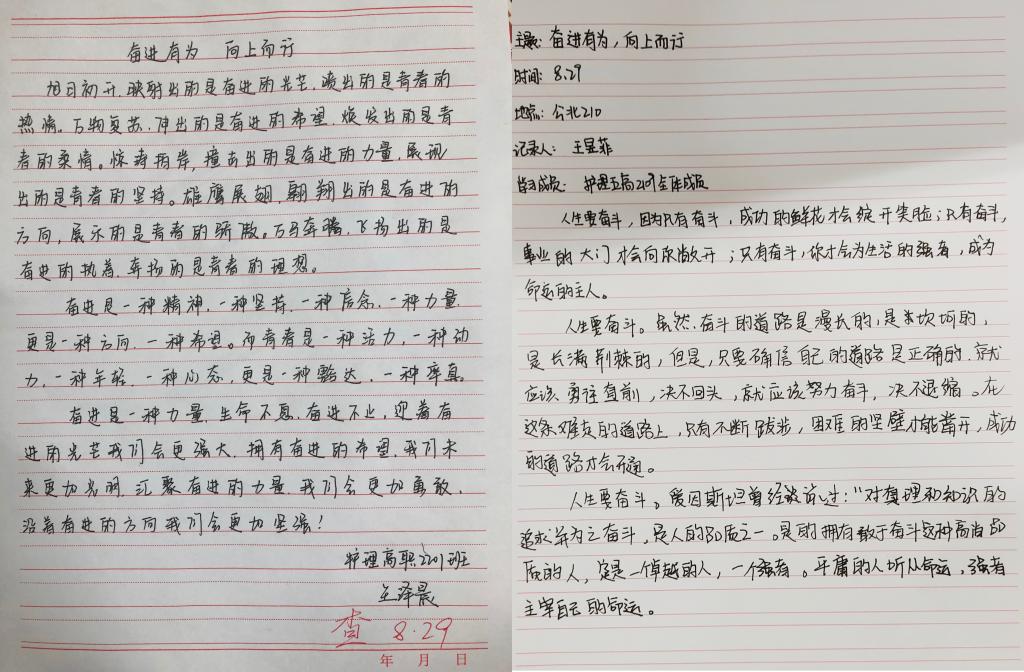 奋进有为 向上而行
旭日初升,映射出的是奋进的光芒,喷出的是青春的
热情。万物复苏,伸出的是奋进的希望,焕发出的是青
春的柔情。惊涛拍岸,撞击出的是奋进的力量,展现
出的是青春的坚持。雄鹰展翅,翱翔出的是奋进的
方向,展示的是青春的骄傲。万马奔腾,飞扬出的是
奋进的执着,奔扬的是青春的理想。
奋进是一种精神,一种坚持,一种信念,一种力量,
更是一种方向,一种希望。而青春是一种活力,一种动
力,一种年轻,一种心态,更是一种豁达,一种率真。
奋进是一种力量,生命不息,奋进不止,迎着有
进的光芒我们会更强大,拥有奋进的希望,我们未
来更加光明,汇聚奋进的力量,我们会更加勇敢,
沿着奋进的方向我们会更加坚强!
护理高职2201班
王泽晨
查 8.29
年 月 日
主题:奋进有为,向上而行
时间:8.29
地点:公北210
记录人:王昱菲
学习成员:护理五高2107全体成员
人生要奋斗,因为只有奋斗,成功的鲜花才会绽开笑脸;只有奋斗,
事业的大门才会向你敞开;只有奋斗,你才会为生活的强者,成为
命运的主人。
人生要奋斗。虽然,奋斗的道路是漫长的,是坎坷的,
是长满荆棘的,但是,只要确信自己的道路是正确的,就
应该勇往直前,决不回头,就应该努力奋斗,决不退缩。在
这条难走的道路上,只有不断跋涉,困难的坚壁才能凿开,成功
的道路才会开通。
人生要奋斗。爱因斯坦曾经说过:“对真理和知识的
追求并为之奋斗,是人的品质之一。是的拥有敢于奋斗这种高尚品
质的人,定是一个卓越的人,一个强者。平庸的人听从命运,强者
主宰自己的命运。